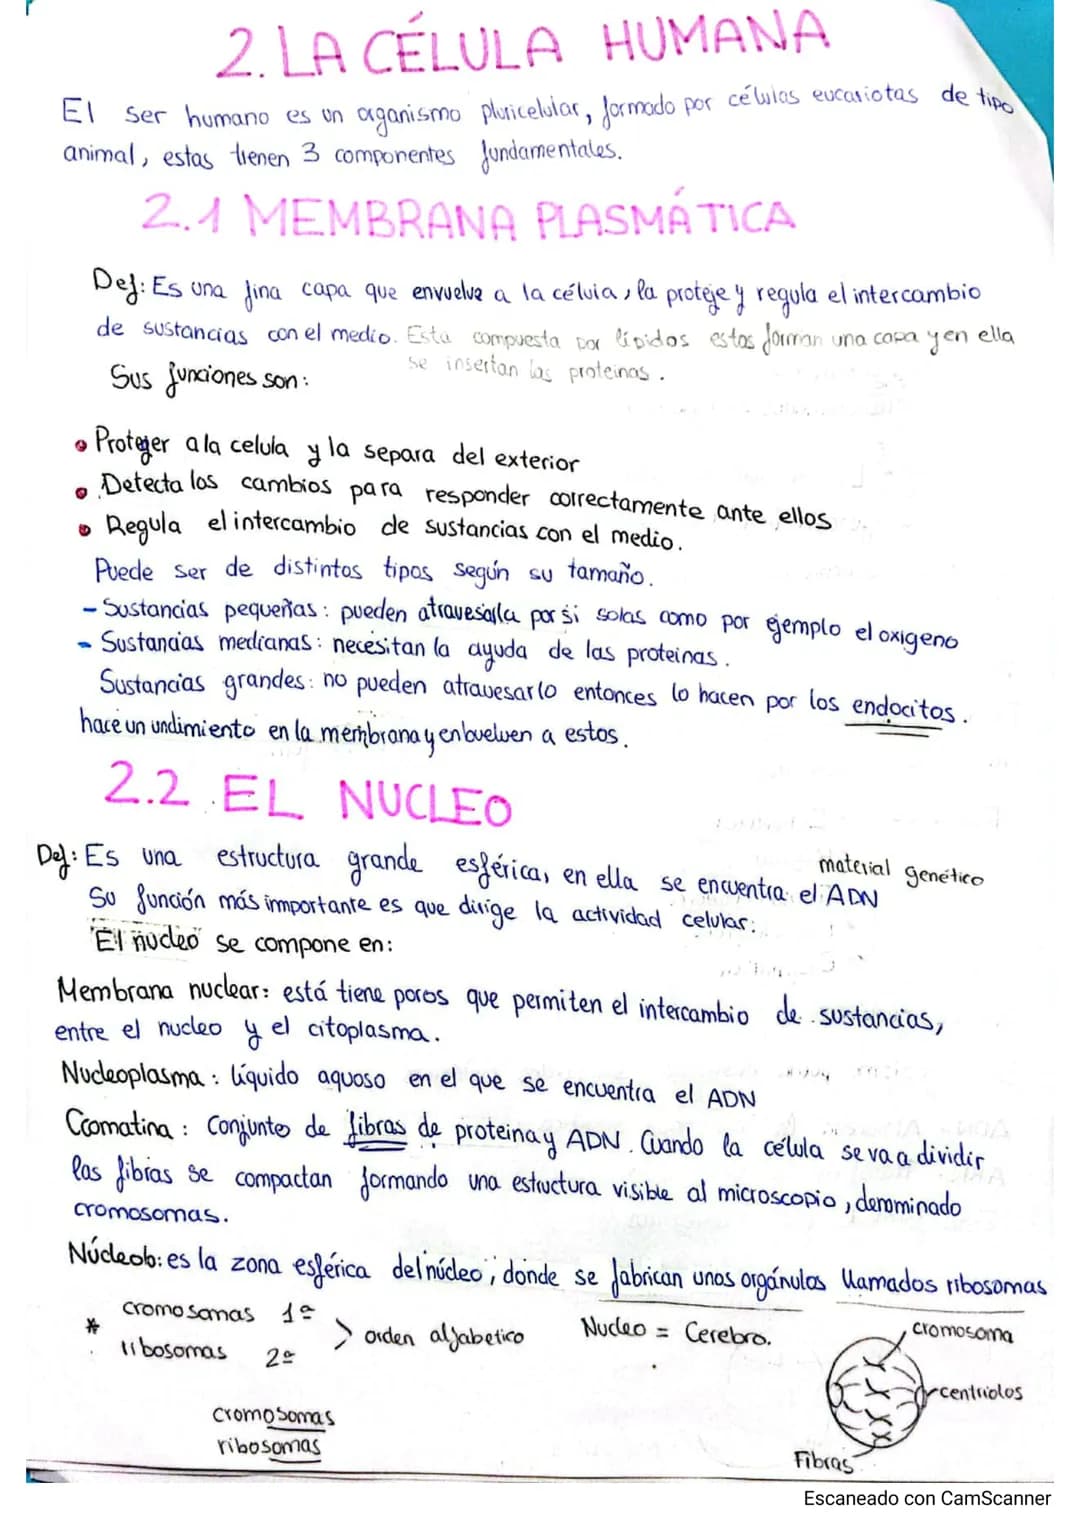 2. LA CÉLULA HUMANA
El ser humano es un organismo pluricelular, formado por células eucariotas de tipo
animal, estas tienen 3 componentes fundamentales.
2.1 MEMBRANA PLASMÁTICA
Def: Es una fina capa que envuelve a la célula, la proteje y regula el intercambio
de sustancias con el medio. Esta compuesta por lípidos estos forman una capa y en ella
se insertan las proteinas.
Sus funciones son:
• Proteger a la celula y la separa del exterior
• Detecta los cambios para responder correctamente ante ellos
• Regula el intercambio de sustancias con el medio.
Puede ser de distintos tipos según su tamaño.
- Sustancias pequeñas: pueden atravesarla por si solas como por ejemplo el oxigeno
- Sustancias medianas: necesitan la ayuda de las proteinas.
Sustancias grandes: no pueden atravesarlo entonces lo hacen por los endocitos.
hace un undimiento en la membrana y enbuelven a estos.
2.2 EL NUCLEO
Def: Es una estructura grande esférica, en ella se encuentra el ADN
material genético
Su función más inmportante es que dirige la actividad celular:
El nucleo se compone en:
Membrana nuclear: está tiene poros que permiten el intercambio de sustancias,
entre el nucleo y el citoplasma.
Nucleoplasma: líquido aquoso en el que se encuentra el ADN
Cromatina: Conjunto de fibras de proteina y ADN. Cuando la célula se va a dividir
las fibras se compactan formando una estructura visible al microscopio, denominado
cromosomas.
Núcleolo: es la zona esférica del núcleo, donde se fabrican unos orgánulos llamados ribosomas
* cromosomas 1º
ribosomas 2º
> orden alfabetico
Nucleo = Cerebro.
cromosoma
centriolos
Fibras
cromosomas
ribosomas
Escaneado con CamScanner